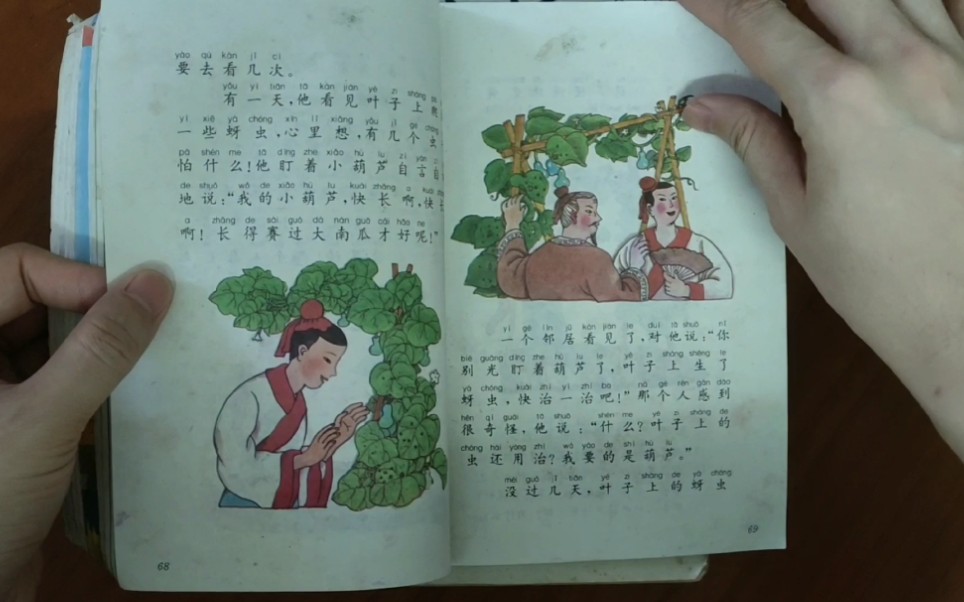 yào qù kàn jǐ cì
要去看几次。
yǒu yì tiān tā kàn jiàn yè zi shàng pá
有一天,他看见叶子上爬
yì xiē yá chóng xīn lǐ xiǎng yǒu jǐ gè chóng
一些蚜虫,心里想,有几个虫
pà shén me tā dīng zhe xiǎo hú lu zì yán zì
怕什么!他盯着小葫芦自言自
de shuō wǒ de xiǎo hú lu kuài zhǎng a kuài
地说:“我的小葫芦,快长啊,快
a zhǎng de sài guò dà nán guā cái hǎo ne
啊!长得赛过大南瓜才好呢!”
68
yí gè lín jū kàn jiàn le duì tā shuō nǐ
一个邻居看见了,对他说:“你
bié guāng dīng zhe hú lu le yè zi shàng shēng le
别光盯着葫芦了,叶子上生了
yá chóng kuài zhì yí zhì ba nà gè rén gǎn dào
蚜虫,快治一治吧!”那个人感到
hěn qí guài tā shuō shén me yè zi shàng de
很奇怪,他说:“什么?叶子上的
chóng hái yòng zhì wǒ yào de shì hú lu
虫还用治?我要的是葫芦。”
méi guò jǐ tiān yè zi shàng de yá chóng
没过几天,叶子上的蚜虫
69